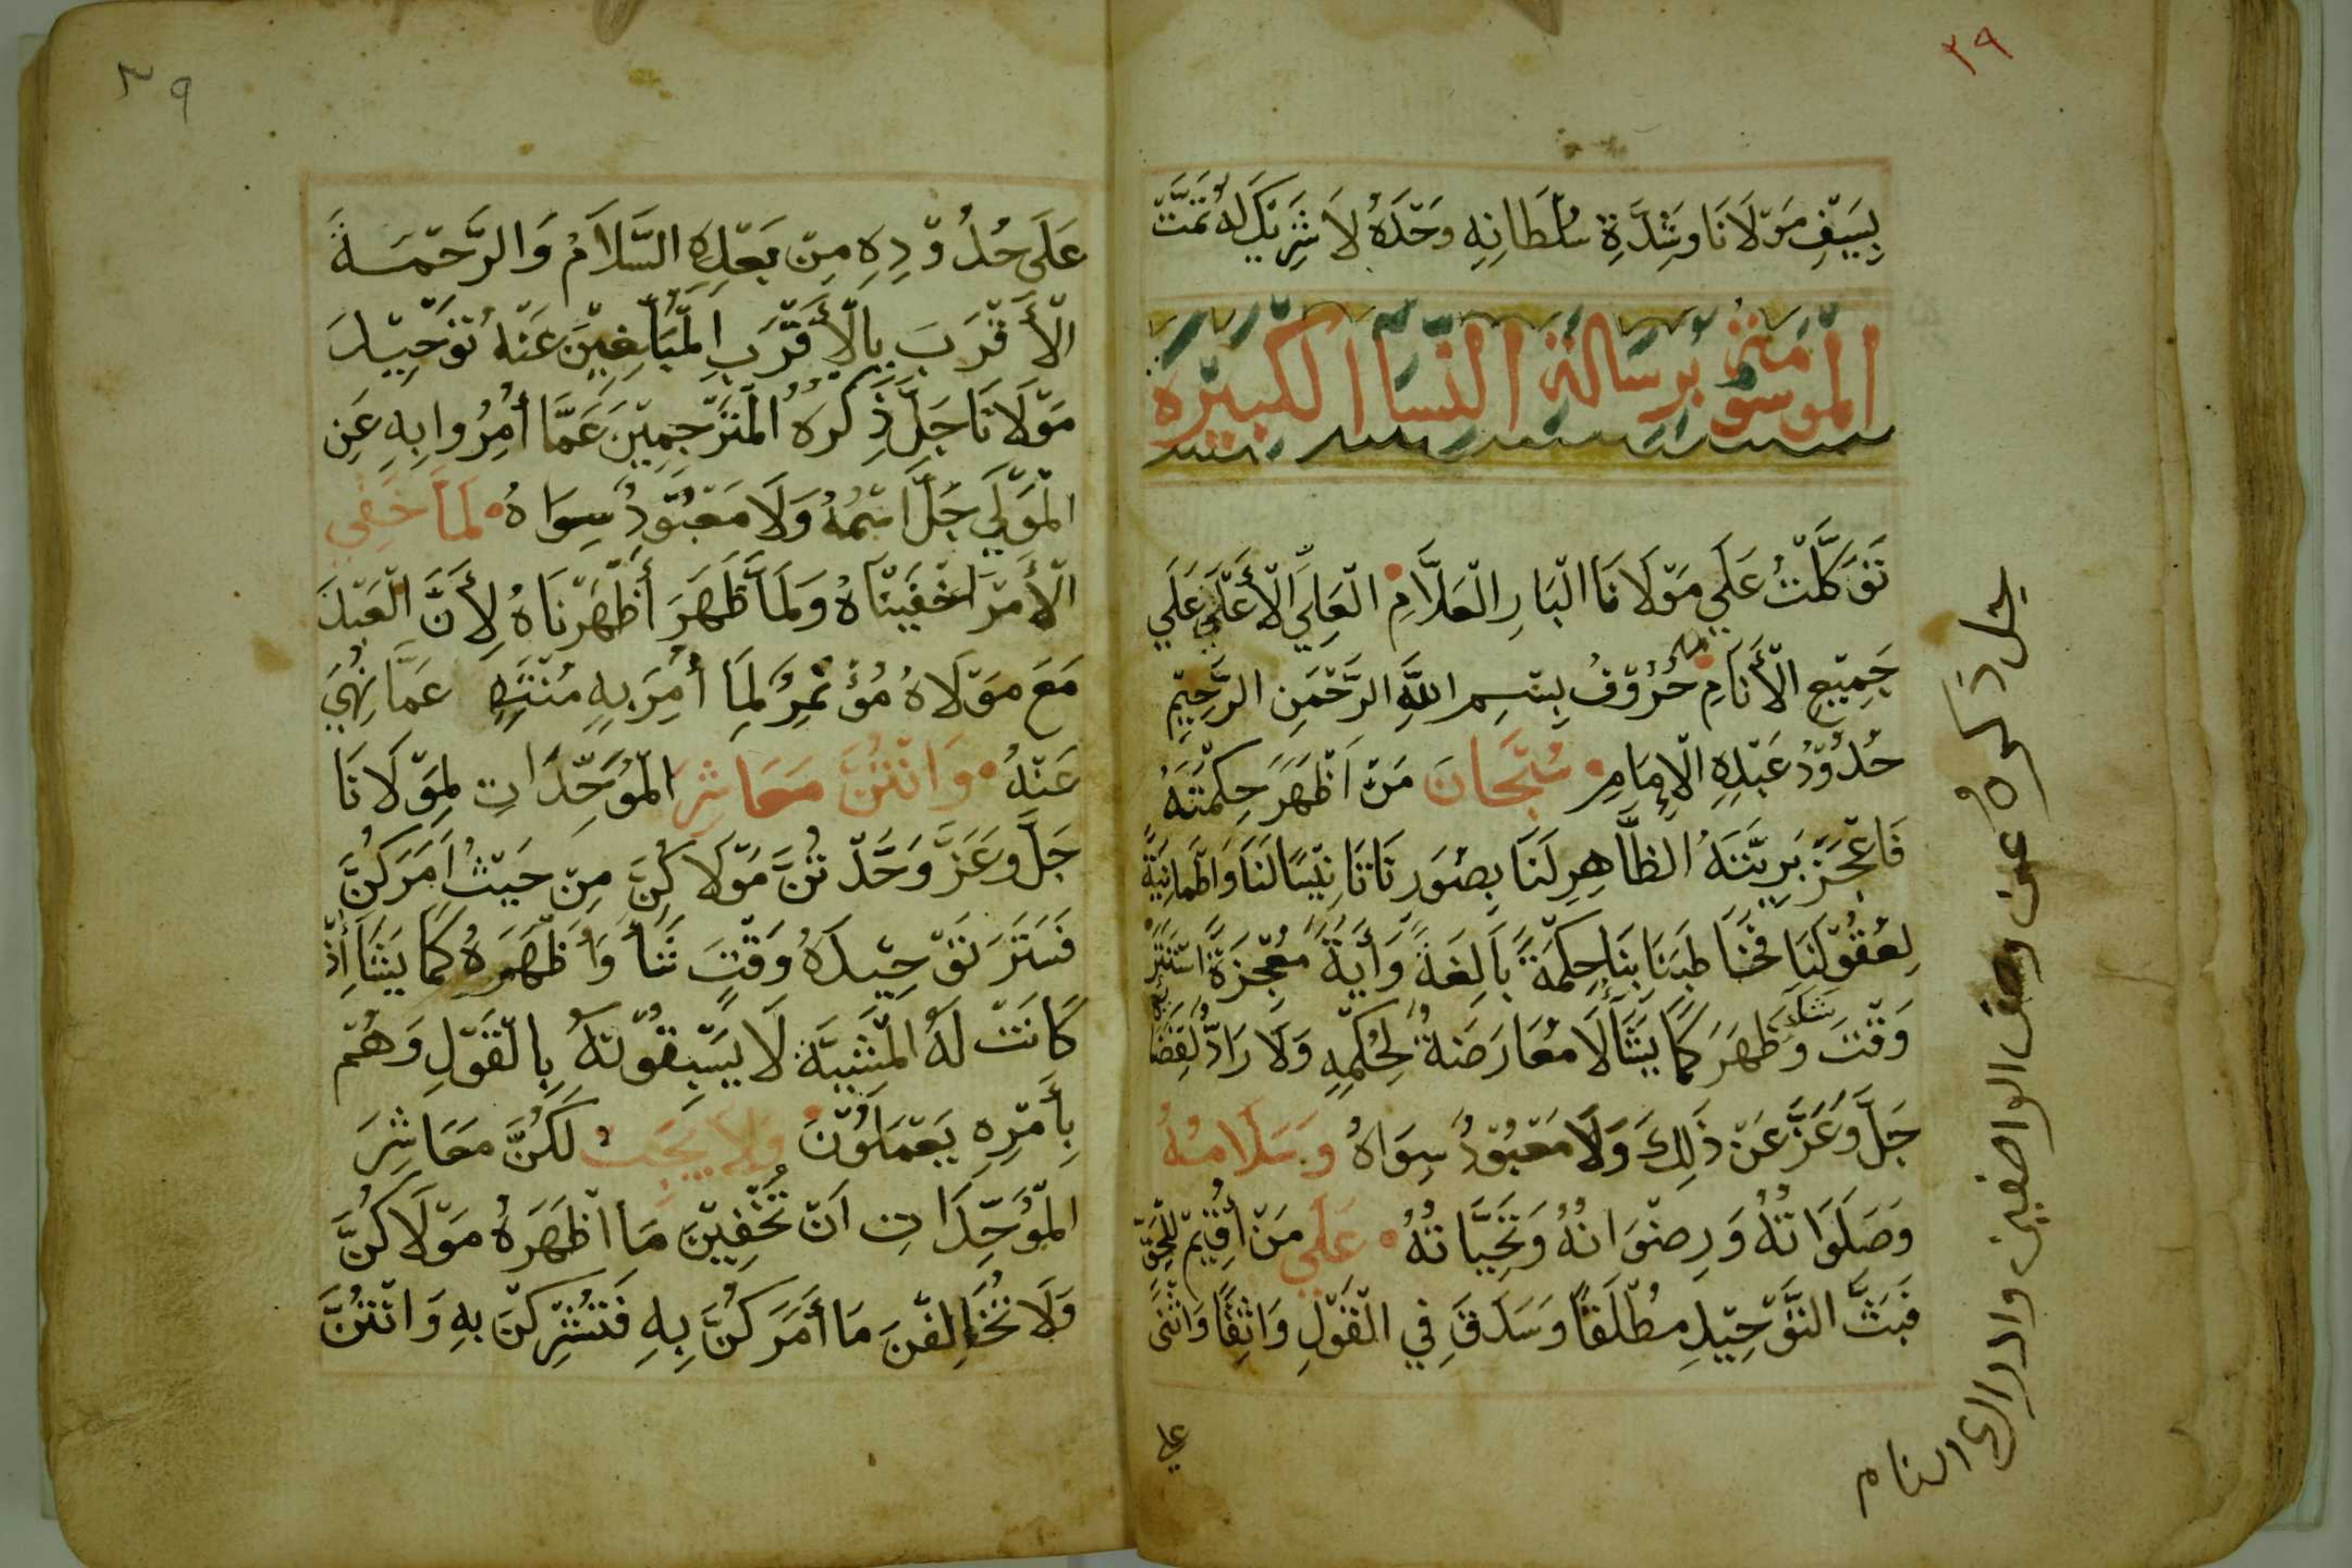 ٣٩
بِسَيْفِ مَوْلَانَا وَشِدَّةِ سُلْطَانِهِ وَحْدَهُ لَا شَرِيْكَ لَهُ تَمَّتْ
الموسومة برسالة النسا الكبيره
تَوَكَّلْتُ عَلَي مَوْلَانَا الْبَارِ الْعَلَّامِ الْعَلِي الْأَعْلَي عَلَي
جَمِيْعِ الْأَنَامِ حُرُوْفُ بِسْمِ اللَّهِ الرَّحْمَنِ الرَّحِيْمِ
حُدُوْدُ عَبْدِهِ الْإِمَامِ سُبْحَانَ مَنْ اَظْهَرَ حِكْمَتَهُ
فَاعْجَزَ بَرِيَّتَهُ الظَّاهِرِ لَنَا بِصُوَرِنَا تَانِيْسًا لَنَا وَاطْمَانِيَةً
لِعُقُوْلِنَا فَخَاطَبَنَا بِنَا حِكْمَةً بَالِغَةً وَأَيَةً مُعْجِزَةً اسْتَتَرَ
وَقْتَ شَاءَ وَظَهَرَ كَمَا يَشَا لَا مُعَارَضَةٌ لِحُكْمِهِ وَلَا رَادٌّ لِقَضَائِهِ
جَلَّ وَعَزَّ عَنْ ذَلِكَ وَلَا مَعْبُوْدٌ سِوَاهُ وَسَلَامُهُ
وَصَلَوَاتُهُ وَرِضْوَانُهُ وَتَحِيَّاتُهُ عَلَي مَنْ أُقِيْمَ لِلْحَقِّ
فَبَثَّ التَّوْحِيْدِ مُطْلَقًا وَسَدَقَ فِي الْقَوْلِ وَاثِقًا وَاثْنَى
علي
جل ذكره عن وصف الواصفين وادراك الانام
٣٩
عَلَى حُدُوْدِهِ مِنْ بَعْدِهِ السَّلَامُ وَالرَّحْمَةَ
الْأَقْرَبَ بِالْأَقْرَبِ الْمُبَلِّغِيْنَ عَنْهُ تَوْحِيْدَ
مَوْلَانَا جَلَّ ذِكْرُهُ الْمُتَرْجِمِيْنَ عَمَّا أُمِرُوا بِهِ عَنِ
الْمَوْلَي جَلَّ اسْمُهُ وَلَا مَعْبُوْدٌ سِوَاهُ لَمَا خَفِي
الْأَمْرَ اَخْفَيْنَاهُ وَلَمَا ظَهَرَ أَظْهَرْنَاهُ لِأَنَّ الْعَبْدَ
مَعَ مَوْلَاهُ مُؤْتَمِرٌ لِمَا أُمِرَ بِهِ مُنْتَهٍ عَمَّا نُهِيَ
عَنْهُ وَانْتُنَّ مَعَاشِرَ الْمُوَحِّدَاتِ لِمَوْلَانَا
جَلَّ وَعَزَّ وَحَّدْتُنَّ مَوْلَاكُنَّ مِنْ حَيْثُ اَمَرَكُنَّ
فَسَتَرَ تَوْحِيْدَهُ وَقْتَ شَاءَ وَأَظْهَرَهُ كَمَا يَشَا إِذْ
كَانَتْ لَهُ الْمَشِيَّةَ لَا يَسْبِقُوْنَهُ بِالْقَوْلِ وَهُمْ
بِأَمْرِهِ يَعْمَلُوْنَ وَلَا يَجِبُ لَكُنَّ مَعَاشِرَ
الْمُوَحِّدَاتِ اَنْ تُخْفِيْنَ مَا اَظْهَرَهُ مَوْلَاكُنَّ
وَلَا تُخَالِفْنَ مَا أَمَرَكُنَّ بِهِ فَتُشْرِكْنَ بِهِ وَانْتُنَّ